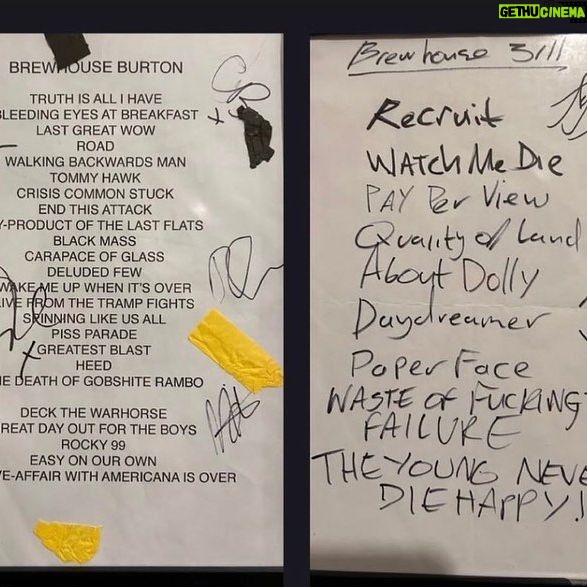 GETHUCINEMA
BREWHOUSE BURTON
TRUTH IS ALL I HAVE
LEEDING EYES AT BREAKFAST
LAST GREAT WOW
ROAD
WALKING BACKWARDS MAN
TOMMY HAWK
CRISIS COMMON STUCK
END THIS ATTACK
Y-PRODUCT OF THE LAST FLATS
BLACK MASS
CARAPACE OF GLASS
DELUDED FEW
WAKE ME UP WHEN IT'S OVER
LIVE FROM THE TRAMP FIGHTS
SPINNING LIKE US ALL
PISS PARADE
GREATEST BLAST
HEED
HE DEATH OF GOBSHITE RAMBO
DECK THE WARHORSE
REAT DAY OUT FOR THE BOYS
ROCKY 99
EASY ON OUR OWN
VE-AFFAIR WITH AMERICANA IS OVER
Brewhouse 3/11
Recruit
WATCH Me Die
PAY Per View
Quality of Land
About Dolly
Daydreamer
Paper Face
WASTE OF FUCKING
FAILURE
THE YOUNG NEVE
DIE HAPPY!